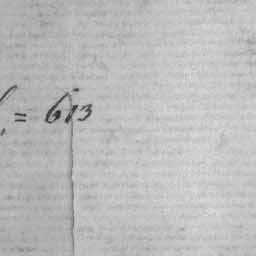 = 613